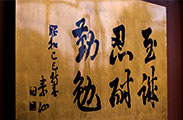 至誠
忍耐
勤勉
昭和己巳新春